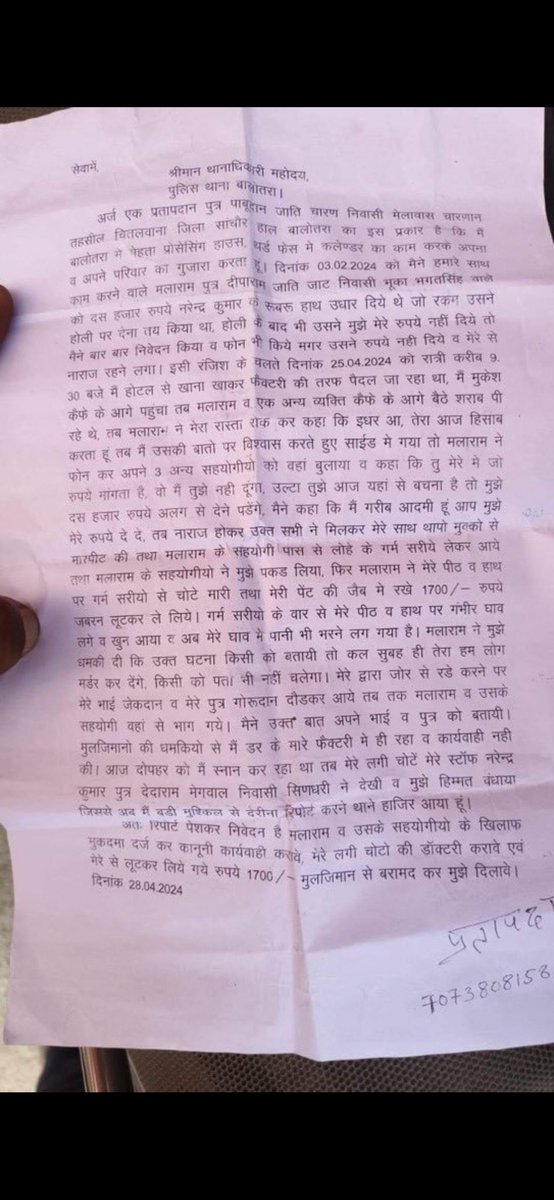 सेवामें,
श्रीमान थानाधिकारी महोदय,
पुलिस थाना बालोतरा।
अर्ज एक प्रतापदान पुत्र पाबूदान जाति चारण निवासी मेलावास चारणान
तहसील चितलवाना जिला सांचौर हाल बालोतरा का इस प्रकार है कि मैं
बालोतरा मे मेहता प्रोसेसिंग हाउस, थर्ड फेस मे कलेण्डर का काम करके अपना
व अपने परिवार का गुजारा करता हूं। दिनांक 03.02.2024 को मैने हमारे साथ
काम करने वाले मलाराम पुत्र दीपाराम जाति जाट निवासी भूका भगतसिंह वाले
को दस हजार रुपये नरेन्द्र कुमार के रूबरू हाथ उधार दिये थे जो रकम उसने
होली पर देना तय किया था, होली के बाद भी उसने मुझे मेरे रुपये नहीं दिये तो
मैने बार बार निवेदन किया व फोन भी किये मगर उसने रुपये नही दिये व मेरे से
नाराज रहने लगा। इसी रंजिश के चलते दिनांक 25.04.2024 को रात्री करीब 9.
30 बजे मैं होटल से खाना खाकर फैक्टरी की तरफ पैदल जा रहा था, मैं मुकेश
कैफे के आगे पहुंचा तब मलाराम व एक अन्य व्यक्ति कैफे के आगे बैठे शराब पी
रहे थे, तब मलाराम ने मेरा रास्ता रोक कर कहा कि इधर आ, तेरा आज हिसाब
करता हूं तब मैं उसकी बातो पर विश्वास करते हुए साईड मे गया तो मलाराम ने
फोन कर अपने 3 अन्य सहयोगीयो को वहां बुलाया व कहा कि तु मेरे मे जो
रुपये मांगता है, वो मैं तुझे नही दूंगा, उल्टा तुझे आज यहां से बचना है तो मुझे
दस हजार रुपये अलग से देने पडेंगे, मैने कहा कि मैं गरीब आदमी हूं आप मुझे
मेरे रुपये दे दे, तब नाराज होकर उक्त सभी ने मिलकर मेरे साथ थापो मुक्को से
मारपीट की तथा मलाराम के सहयोगी पास से लोहे के गर्म सरीये लेकर आये
तथा मलाराम के सहयोगीयो ने मुझे पकड लिया, फिर मलाराम ने मेरे पीठ व हाथ
पर गर्म सरीयो से चोटे मारी तथा मेरी पेंट की जैब मे रखे 1700/- रुपये
जबरन लूटकर ले लिये। गर्म सरीयो के वार से मेरे पीठ व हाथ पर गंभीर घाव
लगे व खुन आया व अब मेरे घाव मे पानी भी भरने लग गया है। मलाराम ने मुझे
धमकी दी कि उक्त घटना किसी को बतायी तो कल सुबह ही तेरा हम लोग
मर्डर कर देंगे, किसी को पता भी नहीं चलेगा। मेरे द्वारा जोर से रडे करने पर
मेरे भाई जेकदान व मेरे पुत्र गोरूदान दौडकर आये तब तक मलाराम व उसके
सहयोगी वहां से भाग गये। मैने उक्त बात अपने भाई व पुत्र को बतायी।
मुलजिमानो की धमकियो से मैं डर के मारे फैक्टरी मे ही रहा व कार्यवाही नही
की। आज दोपहर को मैं स्नान कर रहा था तब मेरे लगी चोटें मेरे स्टॉफ नरेन्द्र
कुमार पुत्र देदाराम मेगवाल निवासी सिणधरी ने देखी व मुझे हिम्मत बंधाया
जिससे अब मैं बडी मुश्किल से देरीना रिपोर्ट करने थाने हाजिर आया हूं।
अतः रिपोर्ट पेशकर निवेदन है मलाराम व उसके सहयोगीयो के खिलाफ
मुकदमा दर्ज कर कानूनी कार्यवाही करावे, मेरे लगी चोटो की डॉक्टरी करावे एवं
मेरे से लूटकर लिये गये रुपये 1700/- मुलजिमान से बरामद कर मुझे दिलावे।
दिनांक 28.04.2024
7073808158